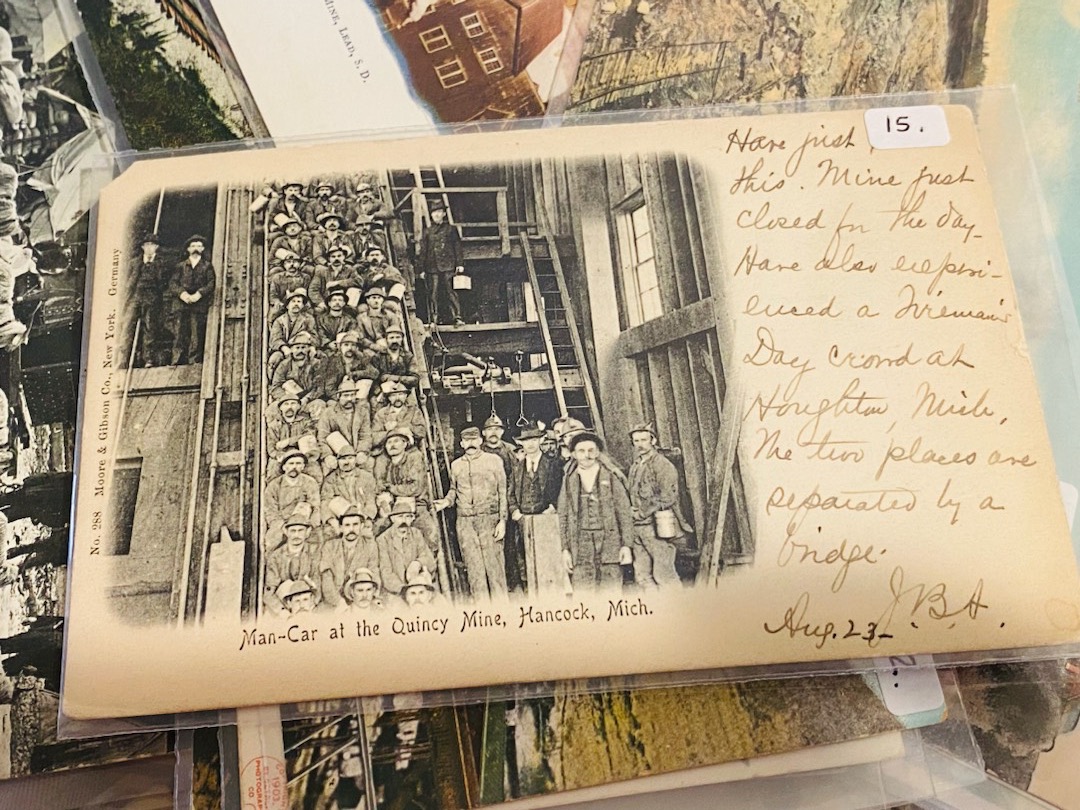 MINE, LEAD, S. D.
15.
Have just
this. Mine just
closed for the day-
Have also experi-
enced a Fireman's
Day crowd at
Houghton, Mich,
The two places are
separated by a
bridge.
J.B.A.
Aug. 23-
No. 288 Moore & Gibson Co., New York. Germany
Man-Car at the Quincy Mine, Hancock, Mich.
PHOTOGRAPH
CO